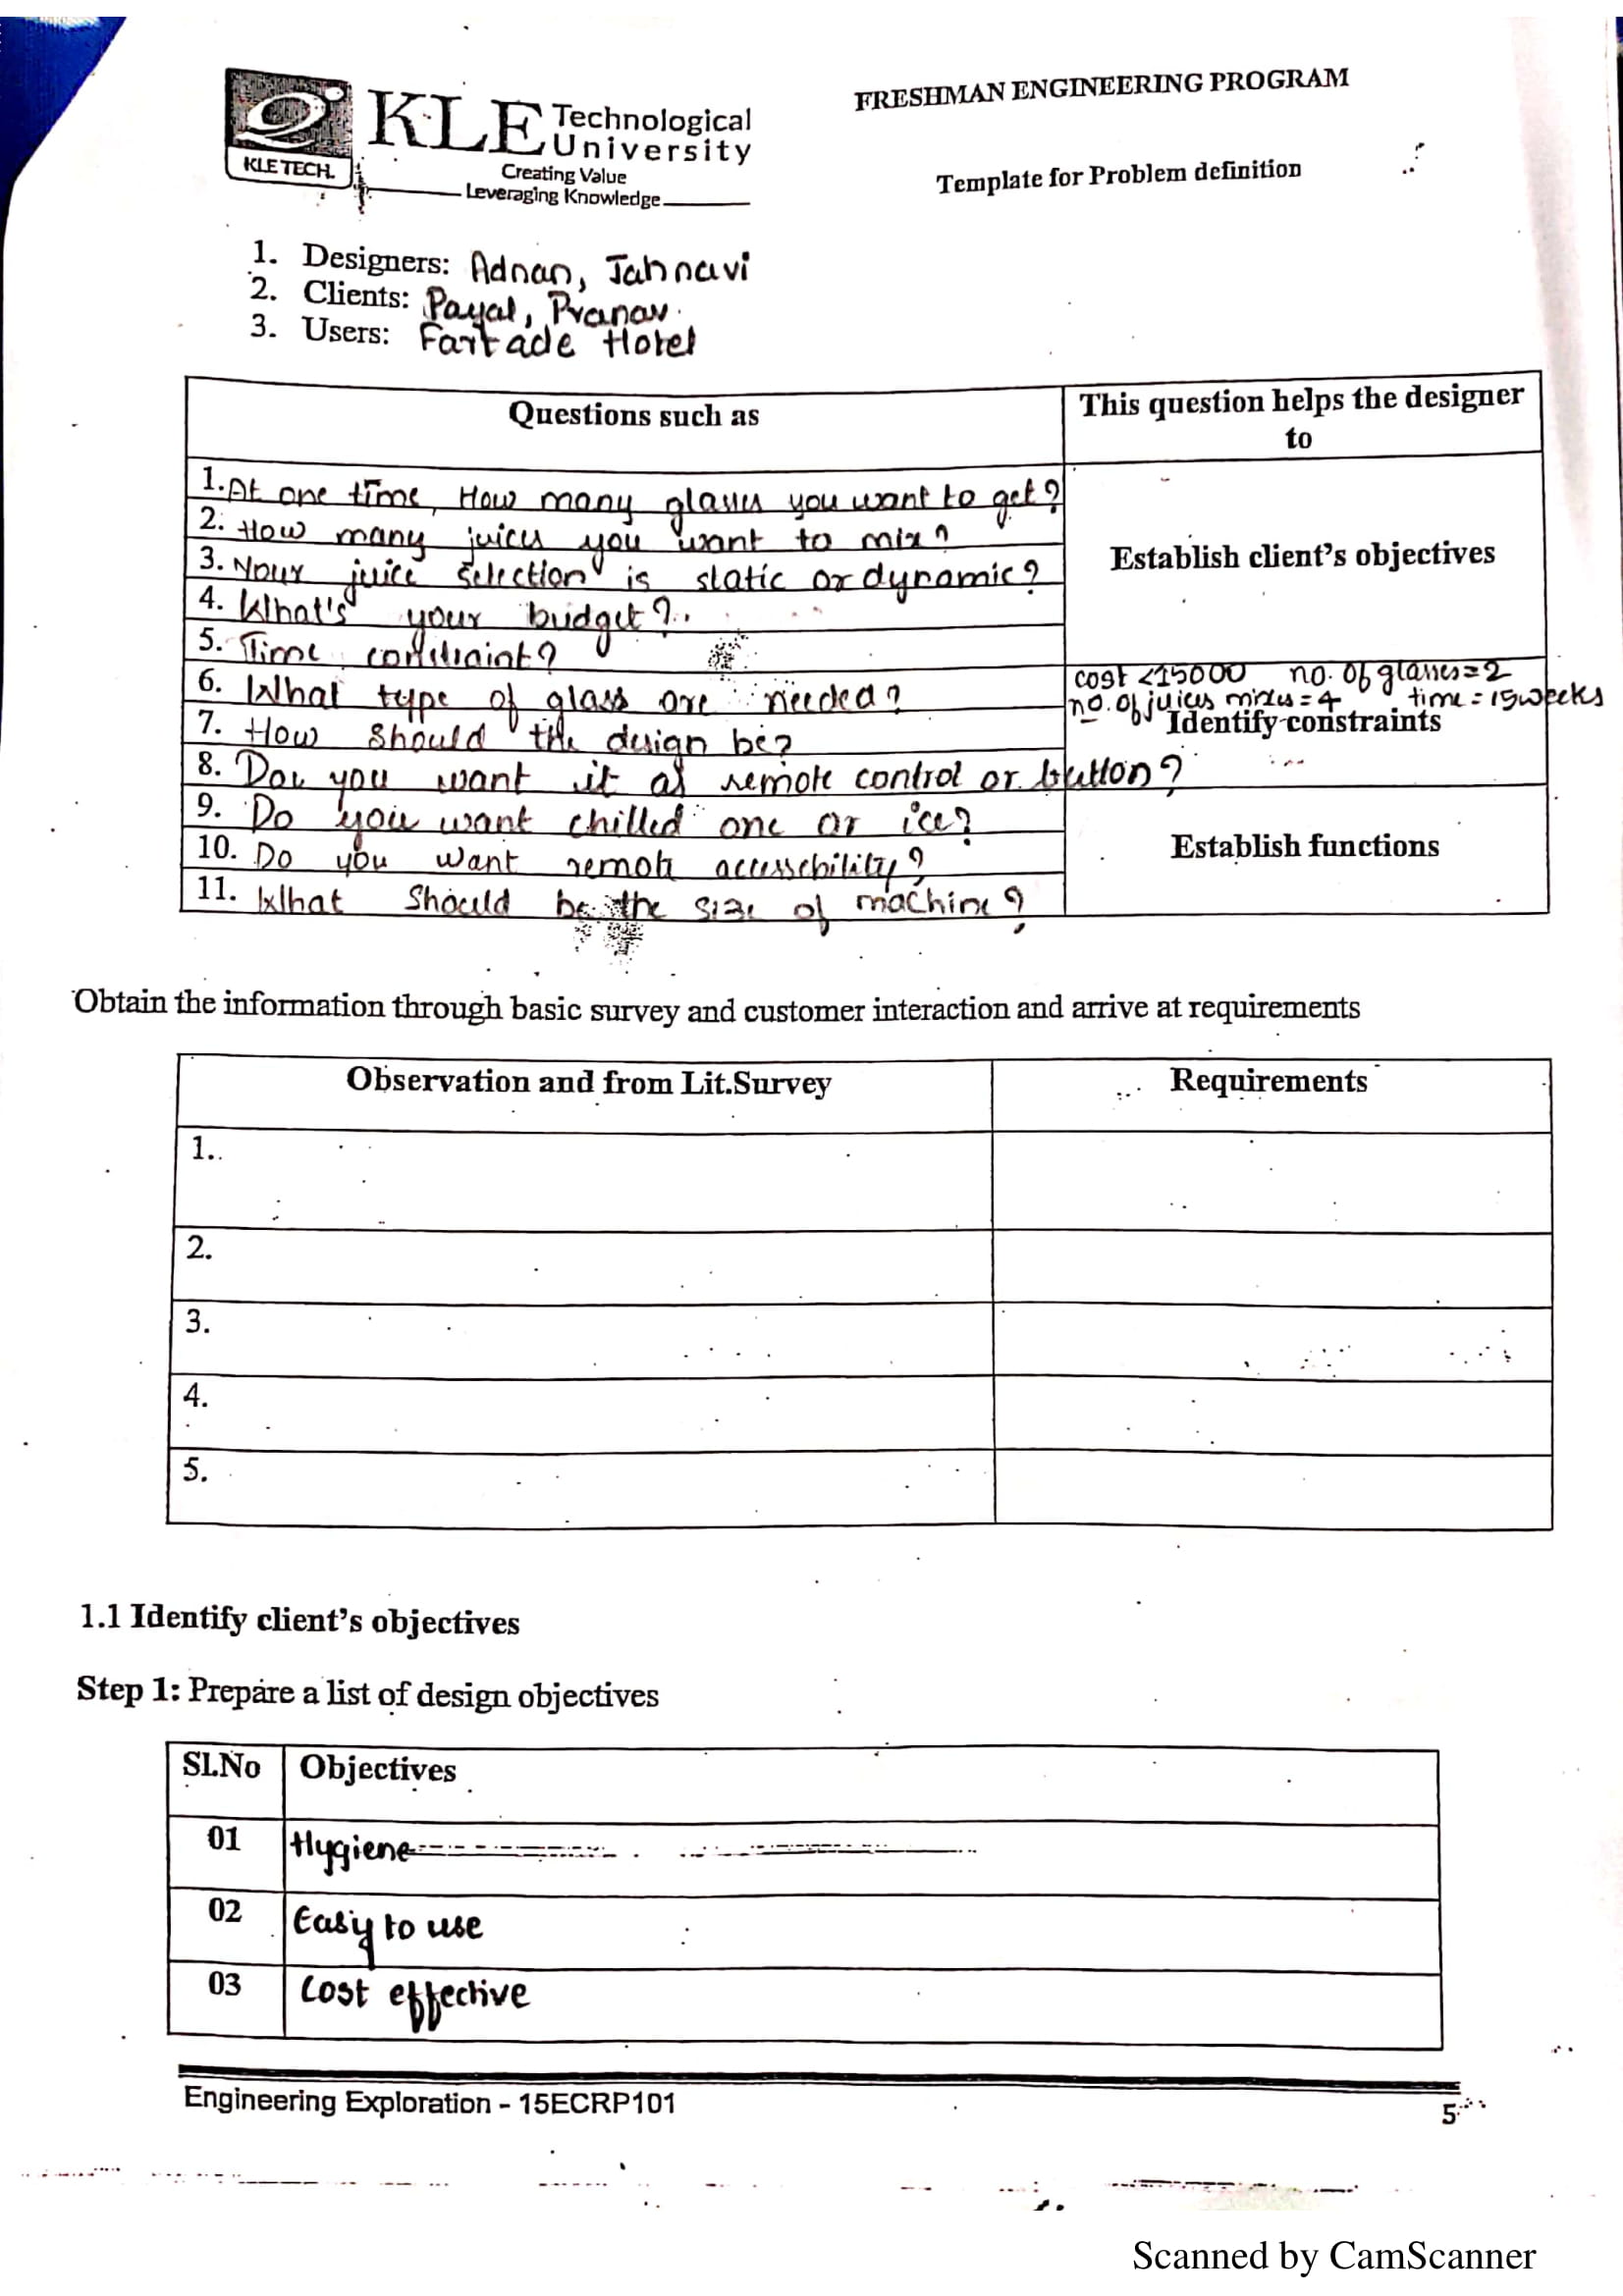 KLE TECH.
KLE Technological University
Creating Value
Leveraging Knowledge
FRESHMAN ENGINEERING PROGRAM
Template for Problem definition
1. Designers: Adnan, Jahnavi
2. Clients: Payal, Pranav.
3. Users: Hotel
Questions such as
This question helps the designer to
1. At one time, How many glasses you want to get?
2. How many juices you want to mix?
3. Your juice selection is static or dynamic?
4. What's your budget?
5. Time constraint?
Establish client's objectives
6. What type of glass are needed?
7. How should the design be?
8. you want it as remote control or button?
cost <15000 no. of glasses = 2
no. of juices mixes = 4 time = 15 weeks
Identify constraints
9. Do you want chilled one or ice?
10. Do you want remote
11. What should be the size of machine?
Establish functions
Obtain the information through basic survey and customer interaction and arrive at requirements
Observation and from Lit.Survey
Requirements
1.
2.
3.
4.
5.
1.1 Identify client's objectives
Step 1: Prepare a list of design objectives
Sl.No Objectives
01 Hygiene
02 Easy to use
03 Cost effective
Engineering Exploration - 15ECRP101
5
Scanned by CamScanner